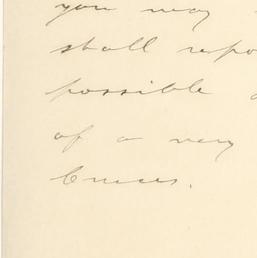 you may
shall repo
possible
of a very